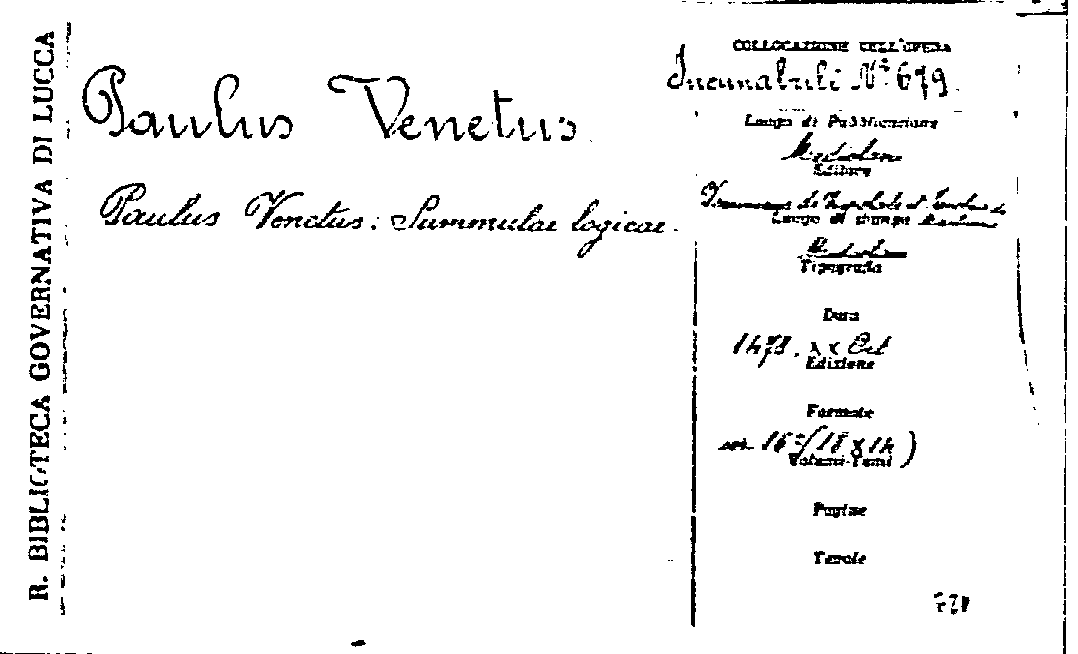 R. BIBLIOTECA GOVERNATIVA DI LUCCA
Paulus Venetus
Paulus Venetus: Summulae logicae.
COLLOCAZIONE DELL'OPERA
Incunabuli Nº 679
Luogo di Pubblicazione
Editore
Luogo di stampa
Tipografia
Data
1478. xx Oct
Edizione
Formato
in 16º (18 x 14)
Volumi-Tomi
Pagine
Tavole